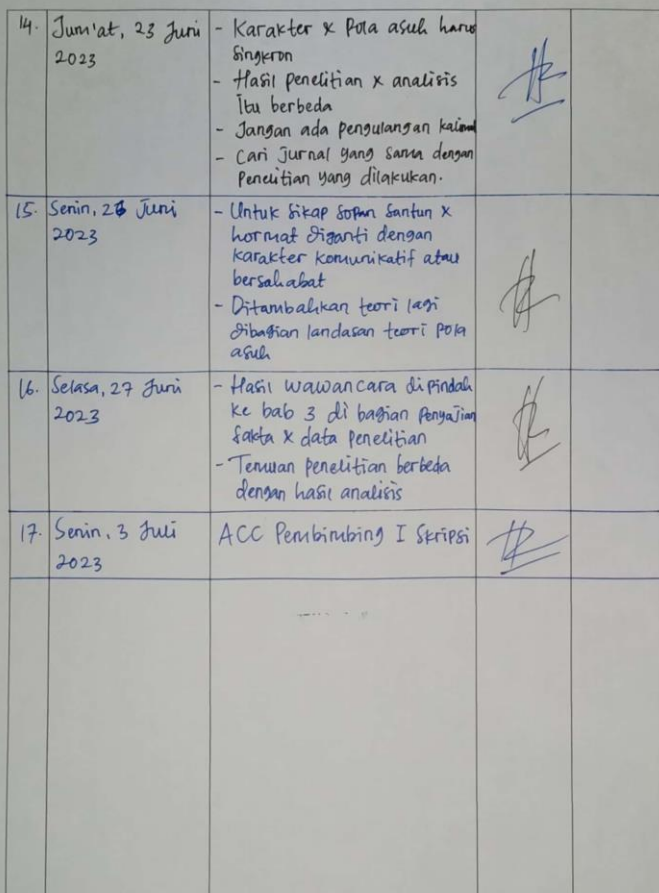 14. Jum'at, 23 Juni 2023
- Karakter x Pola asuh harus
singkron
- Hasil penelitian x analisis
Itu berbeda
- Jangan ada pengulangan kalimat
- Cari Jurnal yang sama dengan
Penelitian yang dilakukan.
15. Senin, 26 Juni 2023
- Untuk sikap sopan santun x
hormat diganti dengan
karakter komunikatif atau
bersahabat
- Ditambahkan teori lagi
dibagian landasan teori Pola
asuh
16. Selasa, 27 Juni 2023
- Hasil wawancara dipindah
ke bab 3 di bagian Penyajian
fakta x data Penelitian
- Temuan Penelitian berbeda
dengan hasil analisis
17. Senin, 3 Juli 2023
ACC Pembimbing I Skripsi